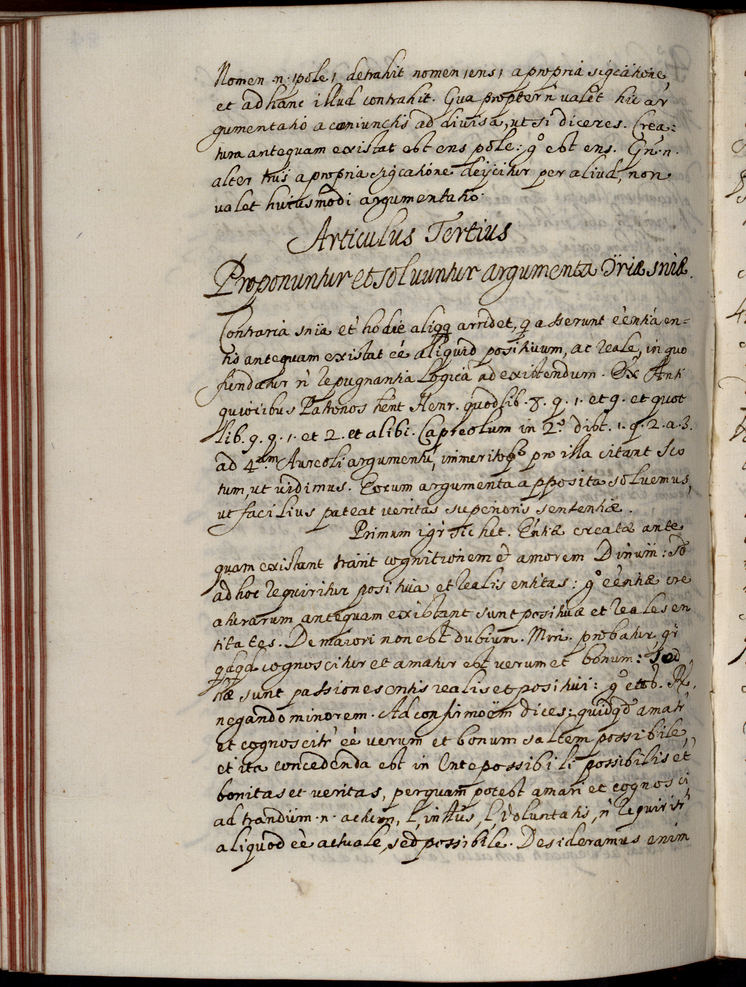 Nomen .n. ipõle, detrahit nomen, ens, a propria sigcãtione
et ad hanc illud contrahit. Qua propter ñ valet hic ar
gumentatio a coniunctis ad divisa, ut si diceres. Crea:
tura antequam existat est ens põle: gº est ens. Qñ .n.
alter trũs a propria sigcatione deijcitur per aliud, non
valet huiusmodi argumentatio.
Articulus Tertius
Proponuntur et soluuntur argumenta Ɔriæ sniæ.
Contraria snia et hodie aliqq arridet, q asserunt eentia en=
tis antequam existat eẽ aliquid positiuum, ac reale, in quo
fundatur ñ repugnantia Logica ad existendum. Ex Anti
quioribus Patronos hẽnt Henr. quodlib. 8. q. 1. et 9. et quot
lib. 9. q. 1. et 2. et alibi. Capreolum in 2º dist. 1. q. 2. a. 3.
ad 4um Aureoli argumentũ, immerito pro illa citant Sco
tum, ut uidimus. Eorum argumenta apposita soluemus,
ut facilius pateat ueritas superioris sententiæ.
Primum igr sic het. Entiæ creatæ ante
quam existant trãnt cognitionem et amorem Diuinũ: sᵭ
ad hoc requiritur positiua et realis entitas: gº eẽntiæ cre
aturarum antequam existant sunt positiuæ et reales en
titates. De maiori non est dubium. Min. probatur, qr
qdqd cognoscitur et amatur est verum et bonum: sed
hæ sunt passiones entis realis et positiui: gº etc. R.
negando minorem. Ad confirmõem dices: quidqd amatr
et cognoscitr eẽ verum et bonum saltem possibile,
et ita concedenda est in Ente possibili possibilis et
bonitas et veritas, per quam potest amari et cognosci
ad trandũm .n. actum, l, intlus, l, Voluntatis, ñ requiritr
aliquod eẽ actuale, sed possibile. Desideramus enim